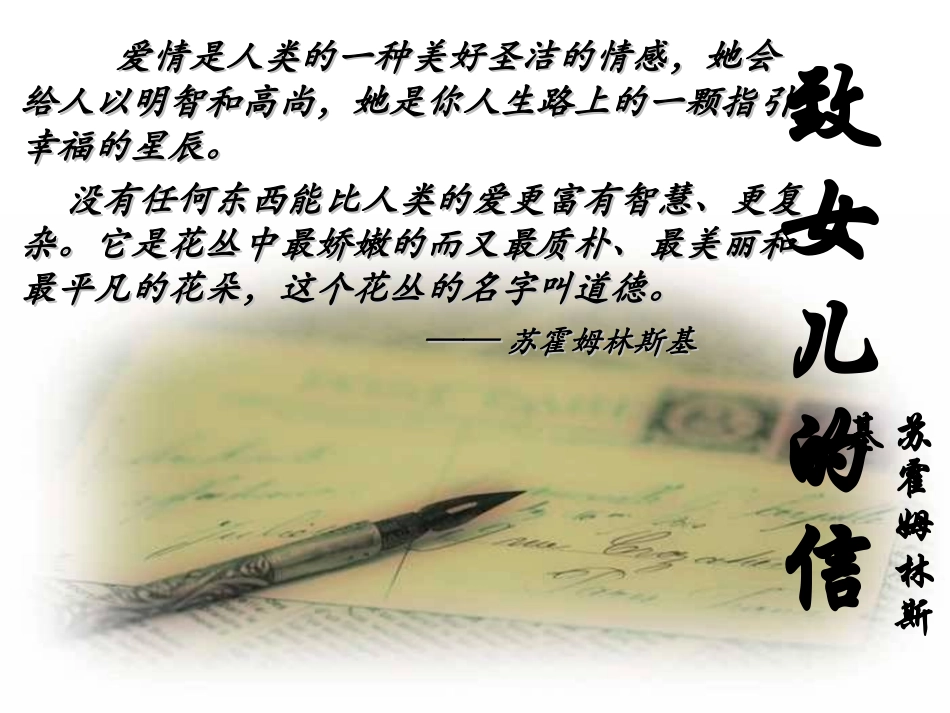 爱情是人类的一种美好圣洁的情感，她会
给人以明智和高尚，她是你人生路上的一颗指引
幸福的星辰。
没有任何东西能比人类的爱更富有智慧、更复
杂。它是花丛中最娇嫩的而又最质朴、最美丽和
最平凡的花朵，这个花丛的名字叫道德。
—— 苏霍姆林斯基
致女儿的信
苏霍姆林斯
基